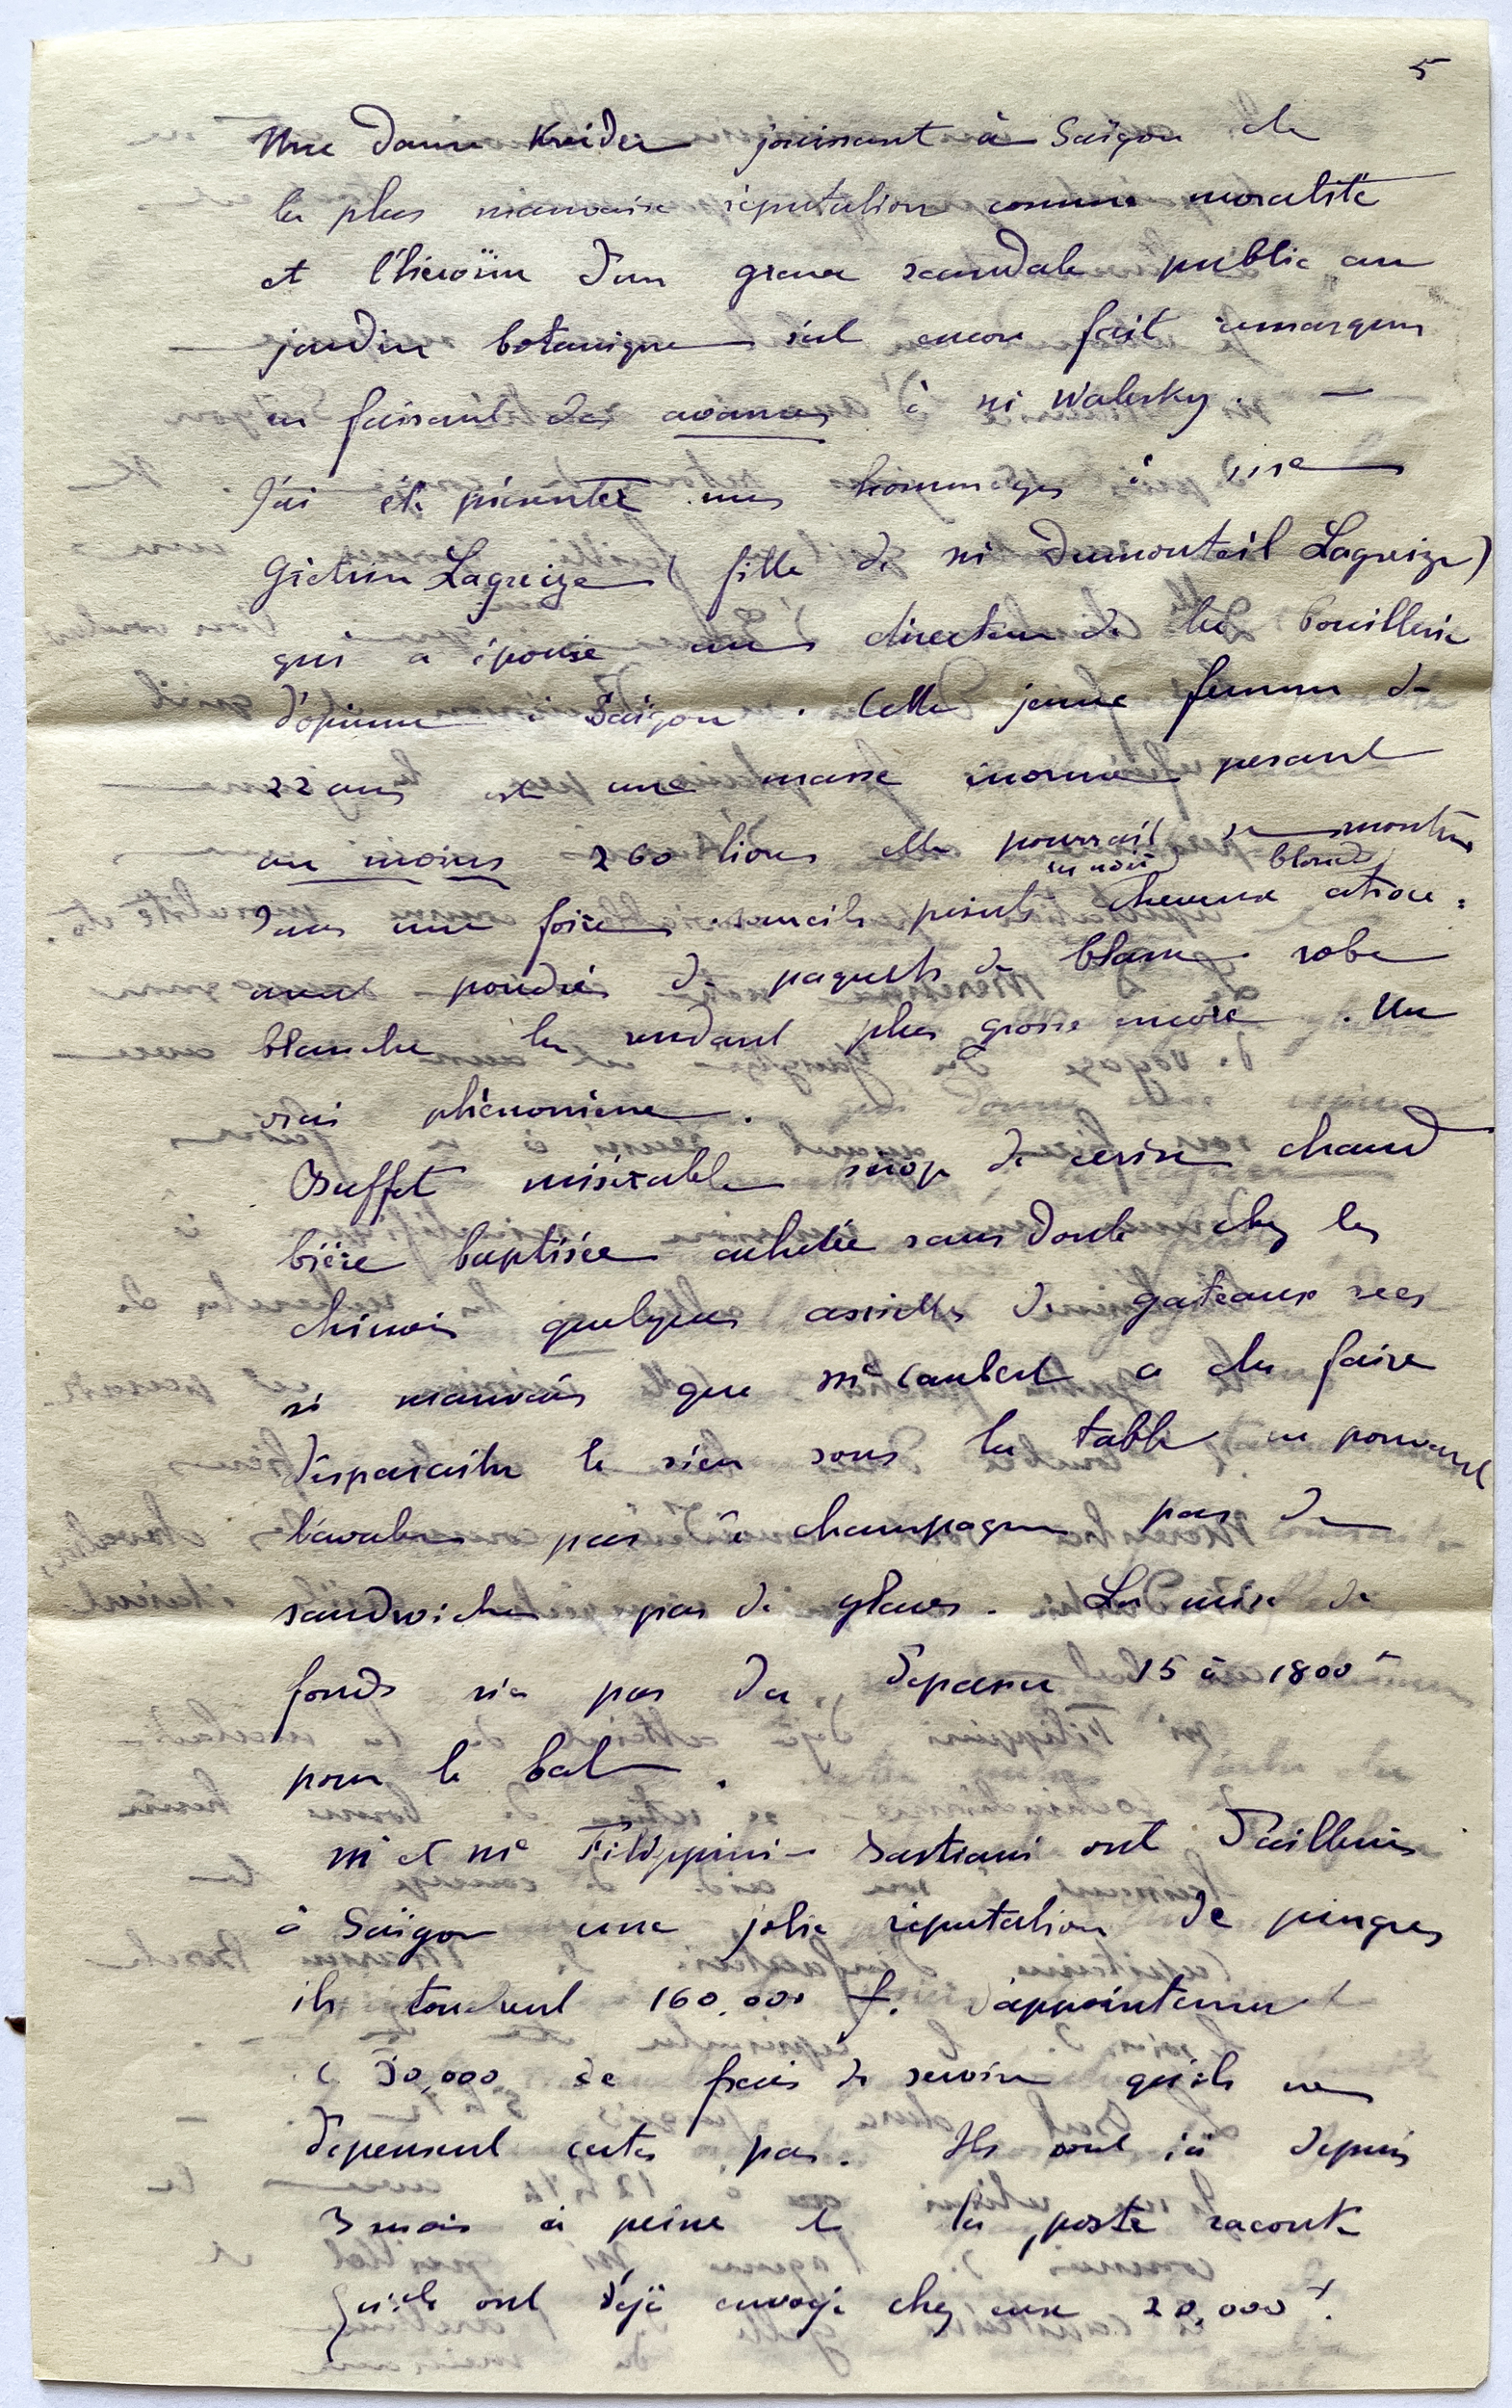 5
Une dame Kreider jouissant à Saïgon de
la plus mauvaise réputation comme moralité
et l'héroïne d'un grave scandale public au
jardin botanique s'est encore fait remarquer
en faisant des avances à M Walesky. —
J'ai été présenter mes hommages à une
Lagreize (fille de M Dumonteil Lagreize)
qui a épousé un directeur de la bouillerie
d'opium à Saïgon. Cette jeune femme de
22 ans est une masse énorme pesant
au moins 260 livres elle pourrait se montrer
dans une foire sourcils peints en noir cheveux blonds atroce-
ment poudrés de paquets de blanc robe
blanche la rendant plus grosse encore. Un
vrai phénomène.
Buffet misérable sirop de cerise chaud
bière baptisée achetée sans doute chez les
chinois quelques assiettes de gateaux secs
si mauvais que Me Caubert a du faire
disparaitre le sien sous la table ne pouvant
l'avaler pas de champagne pas de
sandwiches pas de glaces. La mise de
fonds n'a pas du dépasser 15 à 1800 f
pour le bal.
M et Me Filippini - Sastiani ont d'ailleurs
à Saïgon une jolie réputation de pingres
ils touchent 160,000 f. d'appointement
30,000 de frais de service qu'ils ne
dépensent certes pas. Ils sont ici depuis
3 mois à peine et la poste raconte
qu'ils ont déjà envoyé chez eux 20,000 f.